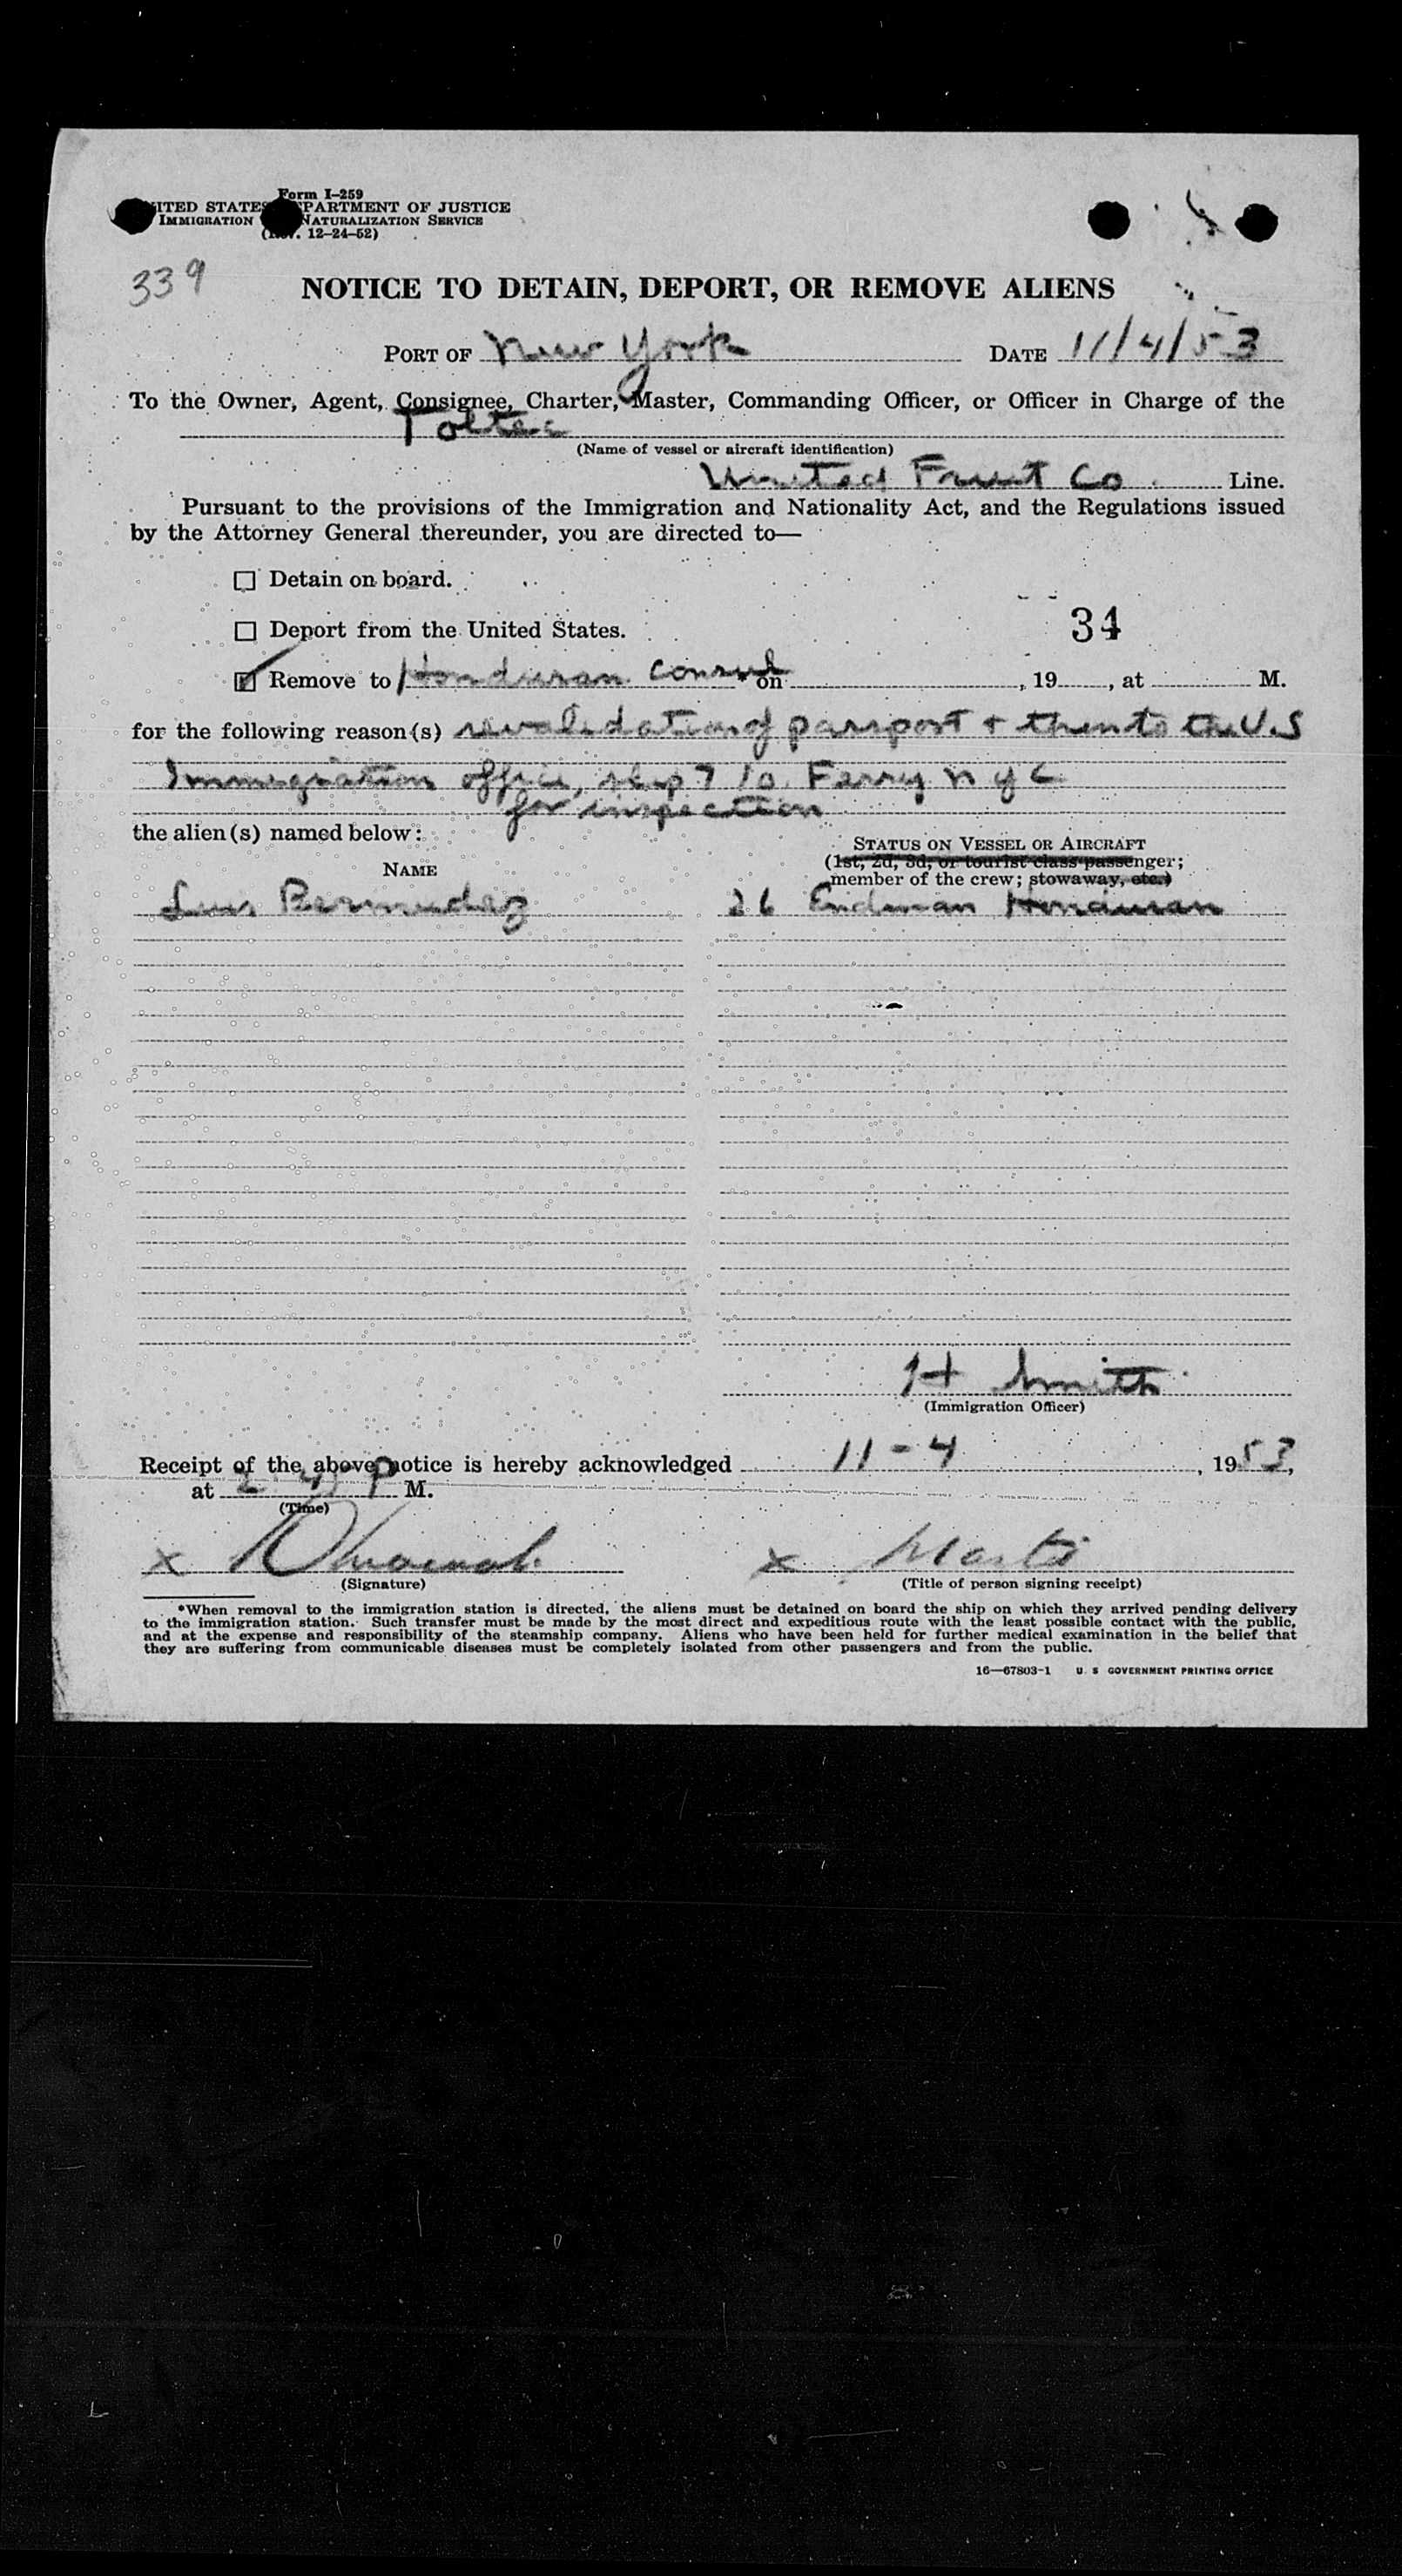 Form I-259
UNITED STATES DEPARTMENT OF JUSTICE
IMMIGRATION NATURALIZATION SERVICE
(Rev. 12-24-52)
339
NOTICE TO DETAIN, DEPORT, OR REMOVE ALIENS
PORT OF New York DATE 11/4/53
To the Owner, Agent, Consignee, Charter, Master, Commanding Officer, or Officer in Charge of the
Toltec
(Name of vessel or aircraft identification)
United Fruit Co. Line.
Pursuant to the provisions of the Immigration and Nationality Act, and the Regulations issued
by the Attorney General thereunder, you are directed to—
☐ Detain on board.
☐ Deport from the United States.
34
☑ Remove to Honduran Consul on , 19 , at M.
for the following reason(s) revalidation of passport + then to the U.S
Immigration office, slip 7 So. Ferry N Y C
for inspection
the alien(s) named below:
STATUS ON VESSEL OR AIRCRAFT
(1st, 2d, 3d, or tourist class passenger;
member of the crew; stowaway, etc.)
NAME
Luis Bermudez 26 Endman Honduran
H Smith
(Immigration Officer)
Receipt of the above notice is hereby acknowledged 11-4, 1953,
at 2 45 P M.
(Time)
x x Master
(Signature) (Title of person signing receipt)
*When removal to the immigration station is directed, the aliens must be detained on board the ship on which they arrived pending delivery
to the immigration station. Such transfer must be made by the most direct and expeditious route with the least possible contact with the public,
and at the expense and responsibility of the steamship company. Aliens who have been held for further medical examination in the belief that
they are suffering from communicable diseases must be completely isolated from other passengers and from the public.
16—67803-1 U. S GOVERNMENT PRINTING OFFICE